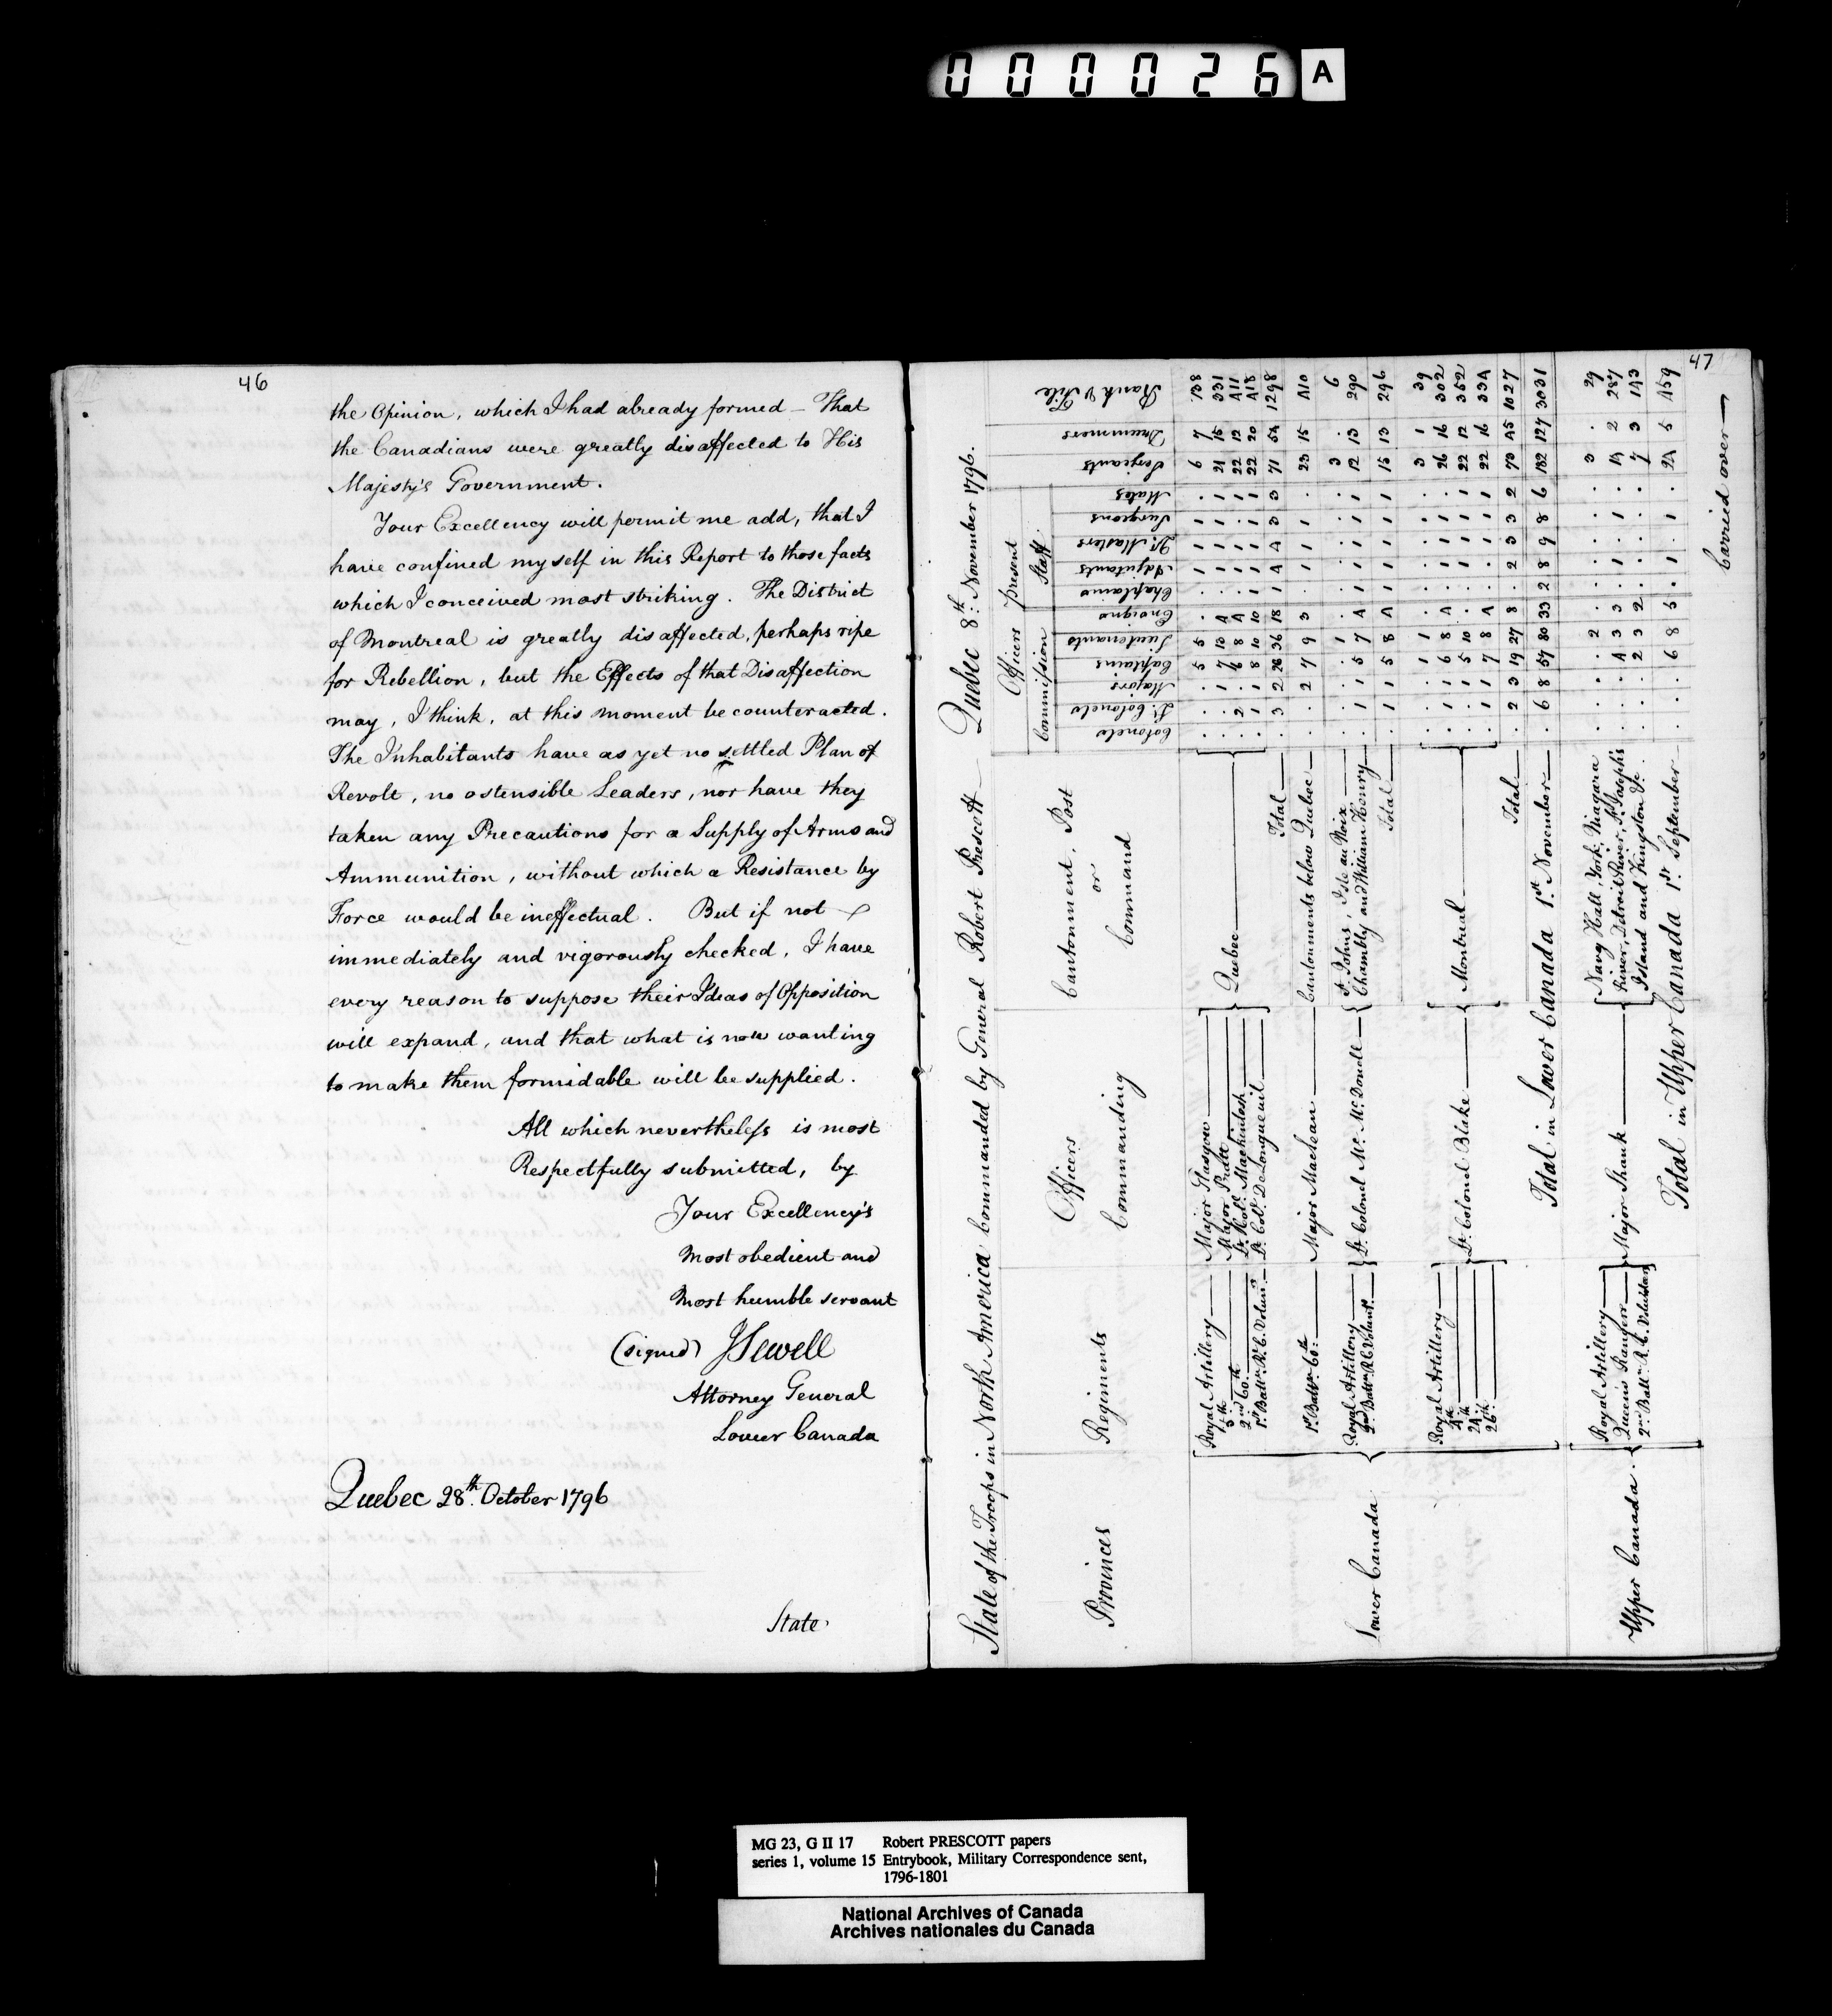 000026 A
46
the Opinion, which I had already formed – That
the Canadians were greatly disaffected to His
Majesty's Government.
Your Excellency will permit me add, that I
have confined my self in this Report to those facts
which I conceived most striking. The District
of Montreal is greatly disaffected, perhaps ripe
for Rebellion, but the Effects of that Disaffection
may, I think, at this moment be counteracted.
The Inhabitants have as yet no settled Plan of
Revolt, no ostensible Leaders, nor have they
taken any Precautions for a Supply of Arms and
Ammunition, without which a Resistance by
Force would be ineffectual. But if not
immediately and vigorously checked, I have
every reason to suppose their Ideas of Opposition
will expand, and that what is now wanting
to make them formidable will be supplied.
All which nevertheless is most
Respectfully submitted, by
Your Excellency's
most obedient and
most humble servant
(signed) J Sewell
Attorney General
Lower Canada
Quebec 28th. October 1796
State
47
State of the Troops in North America Commanded by General Robert Prescott — Quebec 8th: November 1796.
Provinces Regiments Officers Commanding Cantonment, Post or Command Officers present
Commission Staff
Colonels Lt. Colonels Majors Captains Lieutenants Ensigns Chaplains Adjutants Qr. Masters Surgeons Mates Serjeants Drummers Rank & File
Lower Canada
Royal Artillery — Major Glasgow — . . . 5 5 . . 1 1 1 . 6 7 138
. . 1 7 13 4 . 1 1 1 1 21 15 331
2nd 60th . 2 . 6 8 4 . 1 1 . 1 22 12 411
1st Battn. R. C. Volun. — Lt. Col. De Longueuil — . 1 1 8 10 10 1 1 1 1 1 22 20 418
Quebec
Total — . 3 2 26 36 18 1 4 4 3 3 71 54 1298
1st Battn. 60th — Major Maclean — Cantonments below Quebec — . . 2 7 9 3 . 1 1 1 . 23 15 410
Royal Artillery — . . . . 1 . . . . . . 3 . 6
2nd Battn. R C Volunt. — Lt. Colonel Mc. Donell — . 1 1 5 7 4 1 1 1 1 1 12 13 290
St. Johns, Isle au Noix
Chambly and William Henry
Total — . 1 1 5 8 4 1 1 1 1 1 15 13 296
Royal Artillery — . . . 1 1 . . . . . . 3 1 39
4th . 1 1 6 8 4 . 1 1 1 . 26 16 302
24th . . 1 5 10 . . 1 1 1 1 22 12 352
26th . 1 1 7 8 4 . . 1 1 1 22 16 334
Lt. Colonel Blake — Montreal
Total — . 2 3 19 27 8 . 2 3 3 2 73 45 1027
Total in Lower Canada 1st. November — . 6 8 57 80 33 2 8 9 8 6 182 127 3031
Upper Canada
Royal Artillery — . . . . 2 . . . . . . 3 . 29
Queen's Rangers — . . . 4 3 3 . 1 . 1 . 14 2 287
2nd Battn. R. C. Volunteers . . . 2 3 2 . . . . . 7 3 143
Major Shank —
Navy Hall, York, Niagara
River, Detroit River, St. Joseph's
Island and Kingston &c.
Total in Upper Canada 1st September . . . 6 8 5 . 1 . 1 . 24 5 459
Carried over —
MG 23, G II 17 Robert PRESCOTT papers
series 1, volume 15 Entrybook, Military Correspondence sent,
1796-1801
National Archives of Canada
Archives nationales du Canada